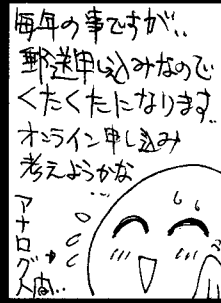 毎年の事ですが、、
郵送申し込みなので
くたくたになります
オンライン申し込み
考えようかな
...
アナログ人間...